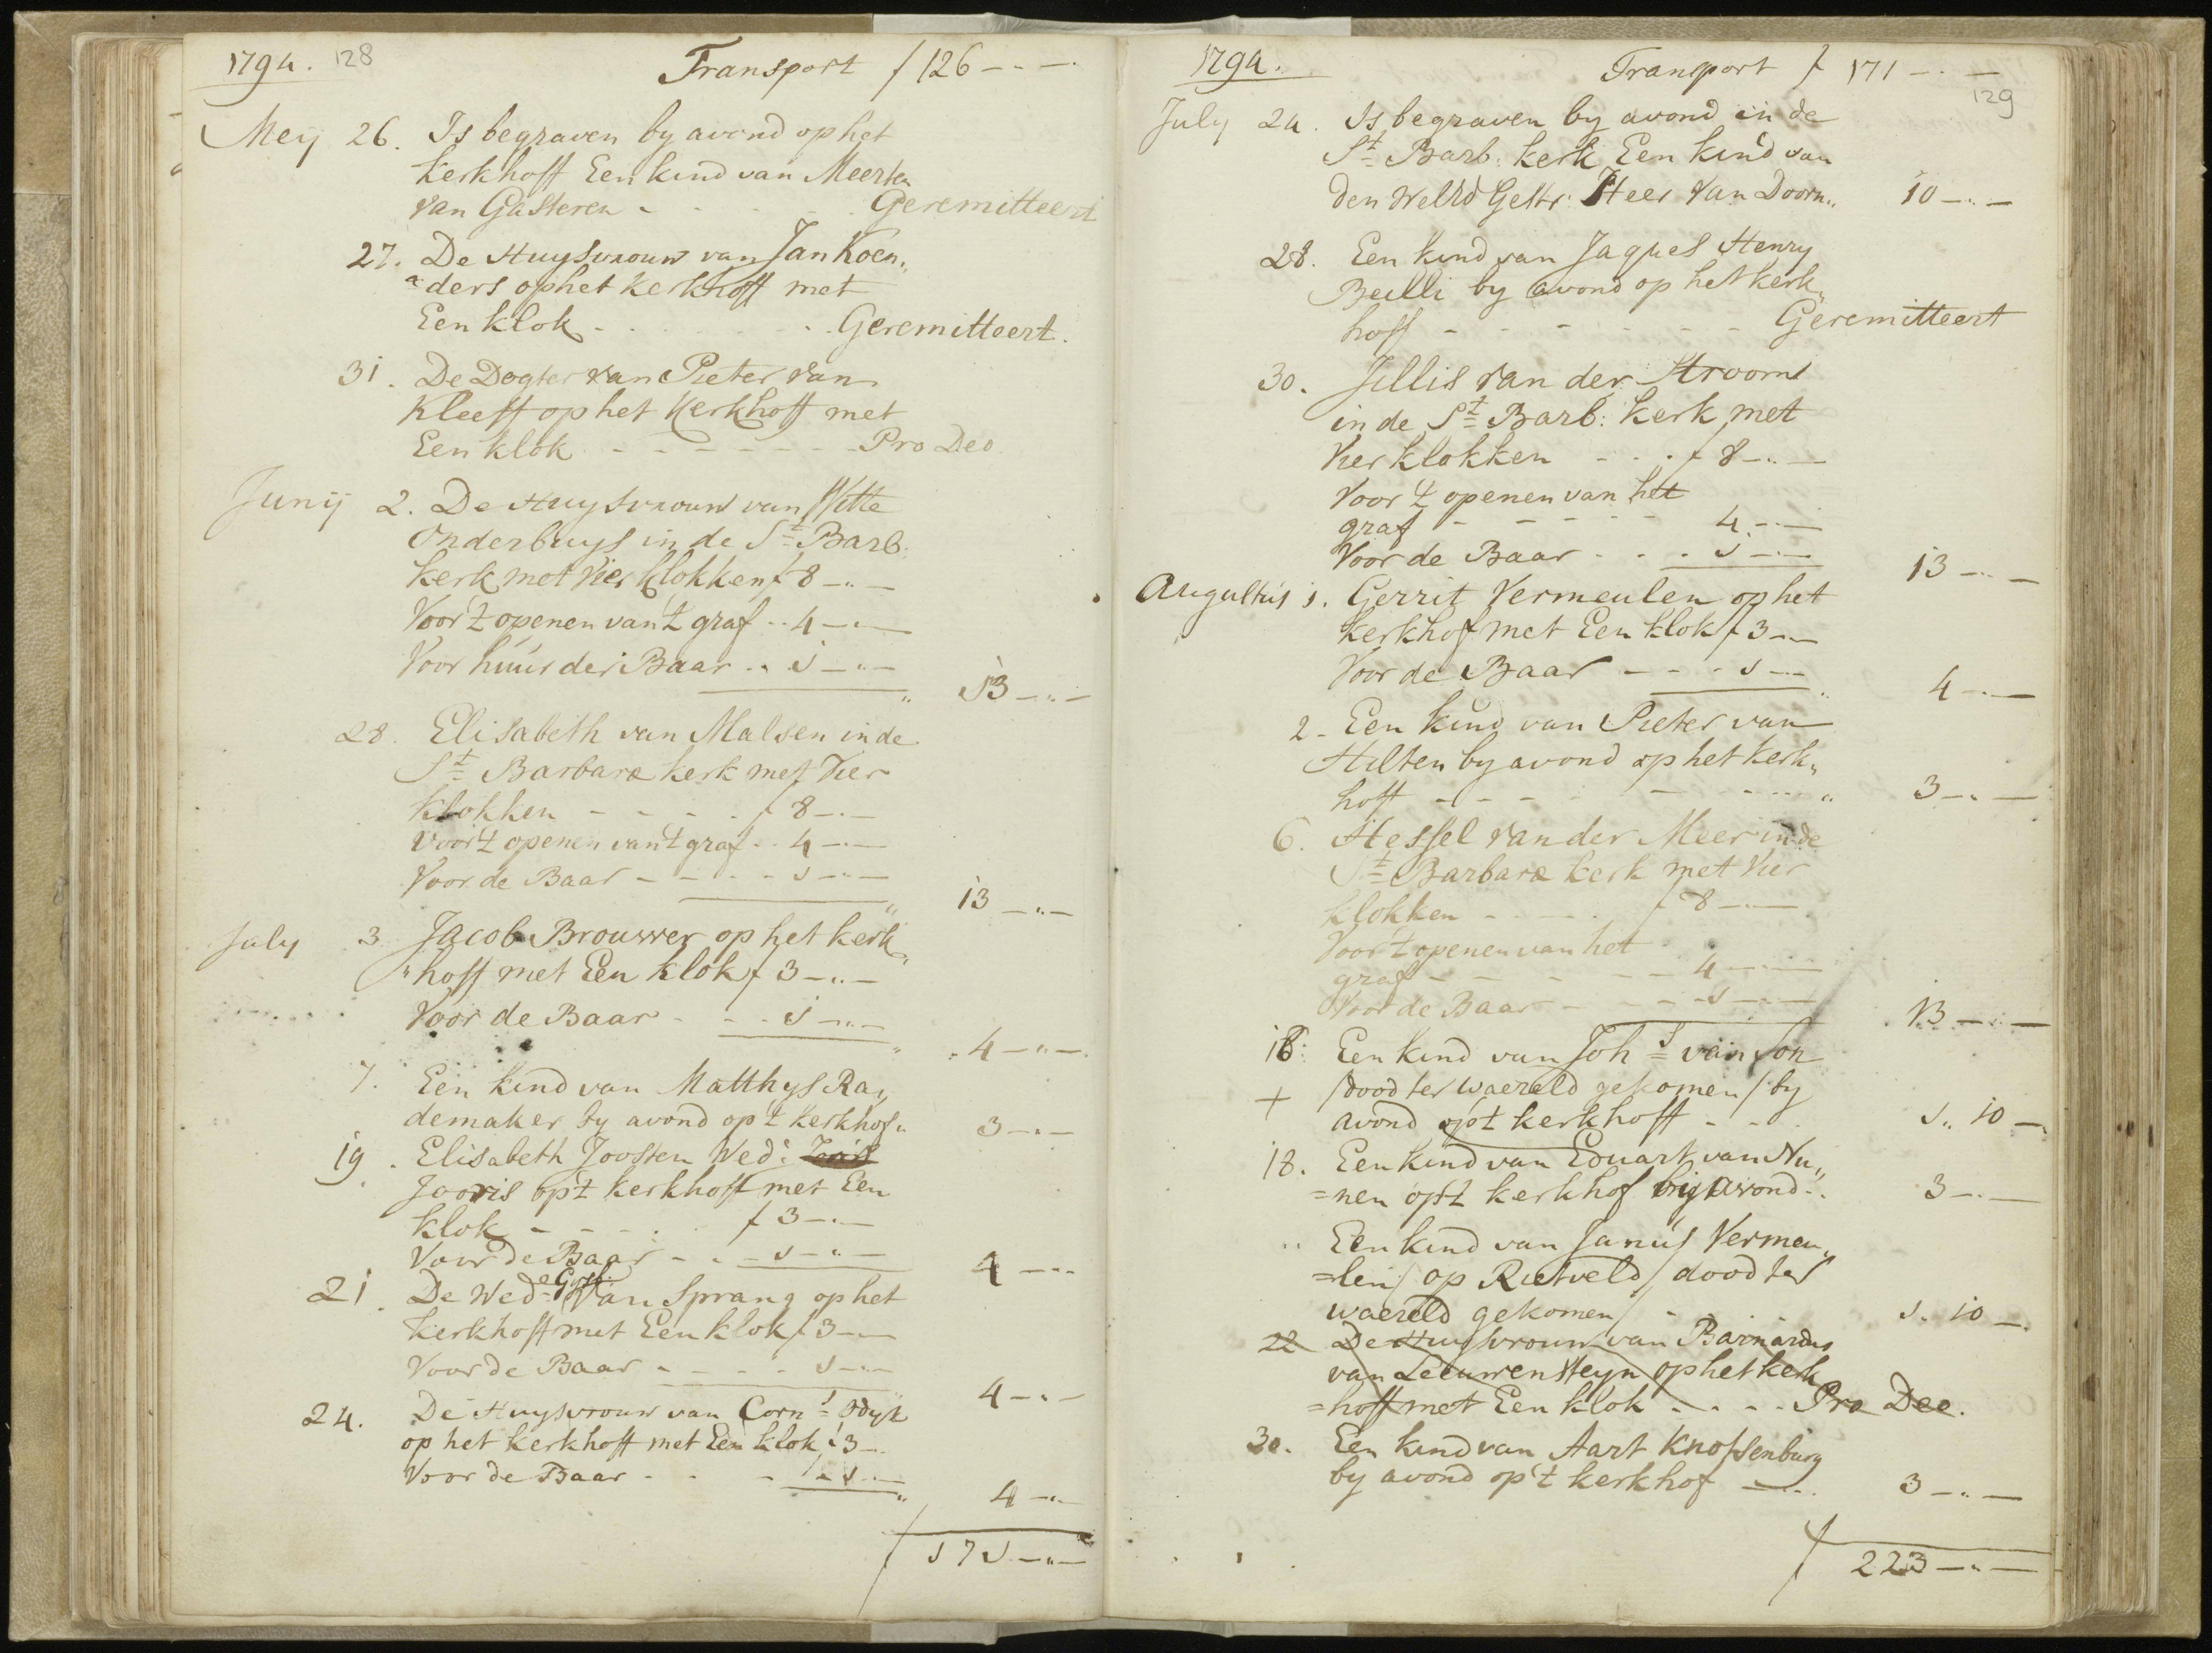 1794. 128
Transport f 126 - „ -
Meij 26. Is begraven by avond op het
kerkhoff Een kind van Meerten
van Gasteren - - - Geremitteert
27. De Huysvrouw van Jan Koen„
„ders op het kerkhoff met
Een klok - - - Geremitteert.
31. De Dogter van Pieter van
Kleeff op het kerkhoff met
Een klok - - - - - - Pro Deo
Junij 2. De Huysvrouw van Witte
Onderbuys in de St Barb:
kerk met vier klokken f 8 - „ -
Voor 't openen van 't graf - - 4 - „ -
Voor huur der Baar - - 1 - „ -
„ 13 - „ -
28. Elisabeth van Malsen in de
St Barbara kerk met vier
klokken - - - - f 8 - „ -
voor 't openen van 't graf - - 4 - „ -
Voor de Baar - - - - 1 - „ -
„ 13 - „ -
July 3 Jacob Brouwer op het kerk„
„hoff met Een klok f 3 - „ -
Voor de Baar - - - 1 - „ -
„ 4 - „ -
7. Een kind van Matthys Ra„
demaker by avond op 't kerkhof „ 3 - „ -
19. Elisabeth Joosten Wede Joris
Jooris op 't kerkhoff met Een
klok - - - - f 3 - „ -
Voor de Baar - - - 1 - „ -
4 - „ -
21. De Wede Gysb: Van Sprang op het
kerkhoff met Een klok f 3 - „ -
Voor de Baar - - - - 1 - „ -
4 - „ -
24. De Huysvrouw van Corns Odyk
op het kerkhoff met Een klok f 3 -
Voor de Baar - - - - 1 - „ -
„ 4 - „ -
f 171 - „ -
1794.
Transport f 171 - „ -
129
July 24. Is begraven by avond in de
St Barb: kerk Een kind van
den WelEd Gestr: Heer Van Doorn „ 10 - „ -
28. Een kind van Jaques Henry
Beilli by avond op het kerk„
hoff - - - - - - Geremitteert
30. Jillis van der Stroom
in de St Barb: kerk met
Vier klokken - - - f 8 - „ -
Voor 't openen van het
graf - - - - - 4 - „ -
Voor de Baar - - - 1 - „ -
13 - „ -
Augustus 1. Gerrit Vermeulen op het
kerkhof met Een klok f 3 - „ -
Voor de Baar - - - 1 - „ -
„ 4 - „ -
2 - Een kind van Pieter van
Hilten by avond op het kerk„
hoff - - - - - - - „ 3 - „ -
6. Hessel van der Meer in de
St Barbara kerk met Vier
klokken - - - - f 8 - „ -
Voor 't openen van het
graf - - - - - 4 - „ -
Voor de Baar - - - - 1 - „ -
13 - „ -
16: Een kind van Johs van Son
+ /dood ter waereld gekomen/ by
avond op 't kerkhoff - - - 1 „ 10 -
18. Een kind van Eduart van Nu„
=nen op 't kerkhof bij avond - 3 - „ -
„ Een kind van Janus Vermeu„
=len/ op Rietveld/ dood ter
waereld gekomen/ - 1 „ 10 -
22 De Huysvrouw van Barnardus
van Leeuwensteyn op het kerk
=hoff met Een klok - - - - Pro Deo.
30. Een kind van Aart Knopsenburg
by avond op 't kerkhof - - - 3 - „ -
f 223 - „ -